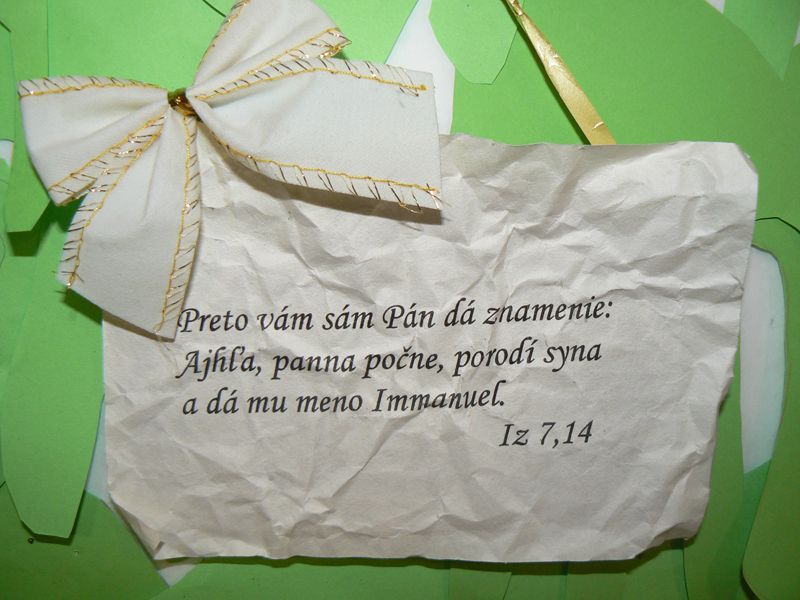 Preto vám sám Pán dá znamenie:
Ajhľa, panna počne, porodí syna
a dá mu meno Immanuel.
Iz 7,14